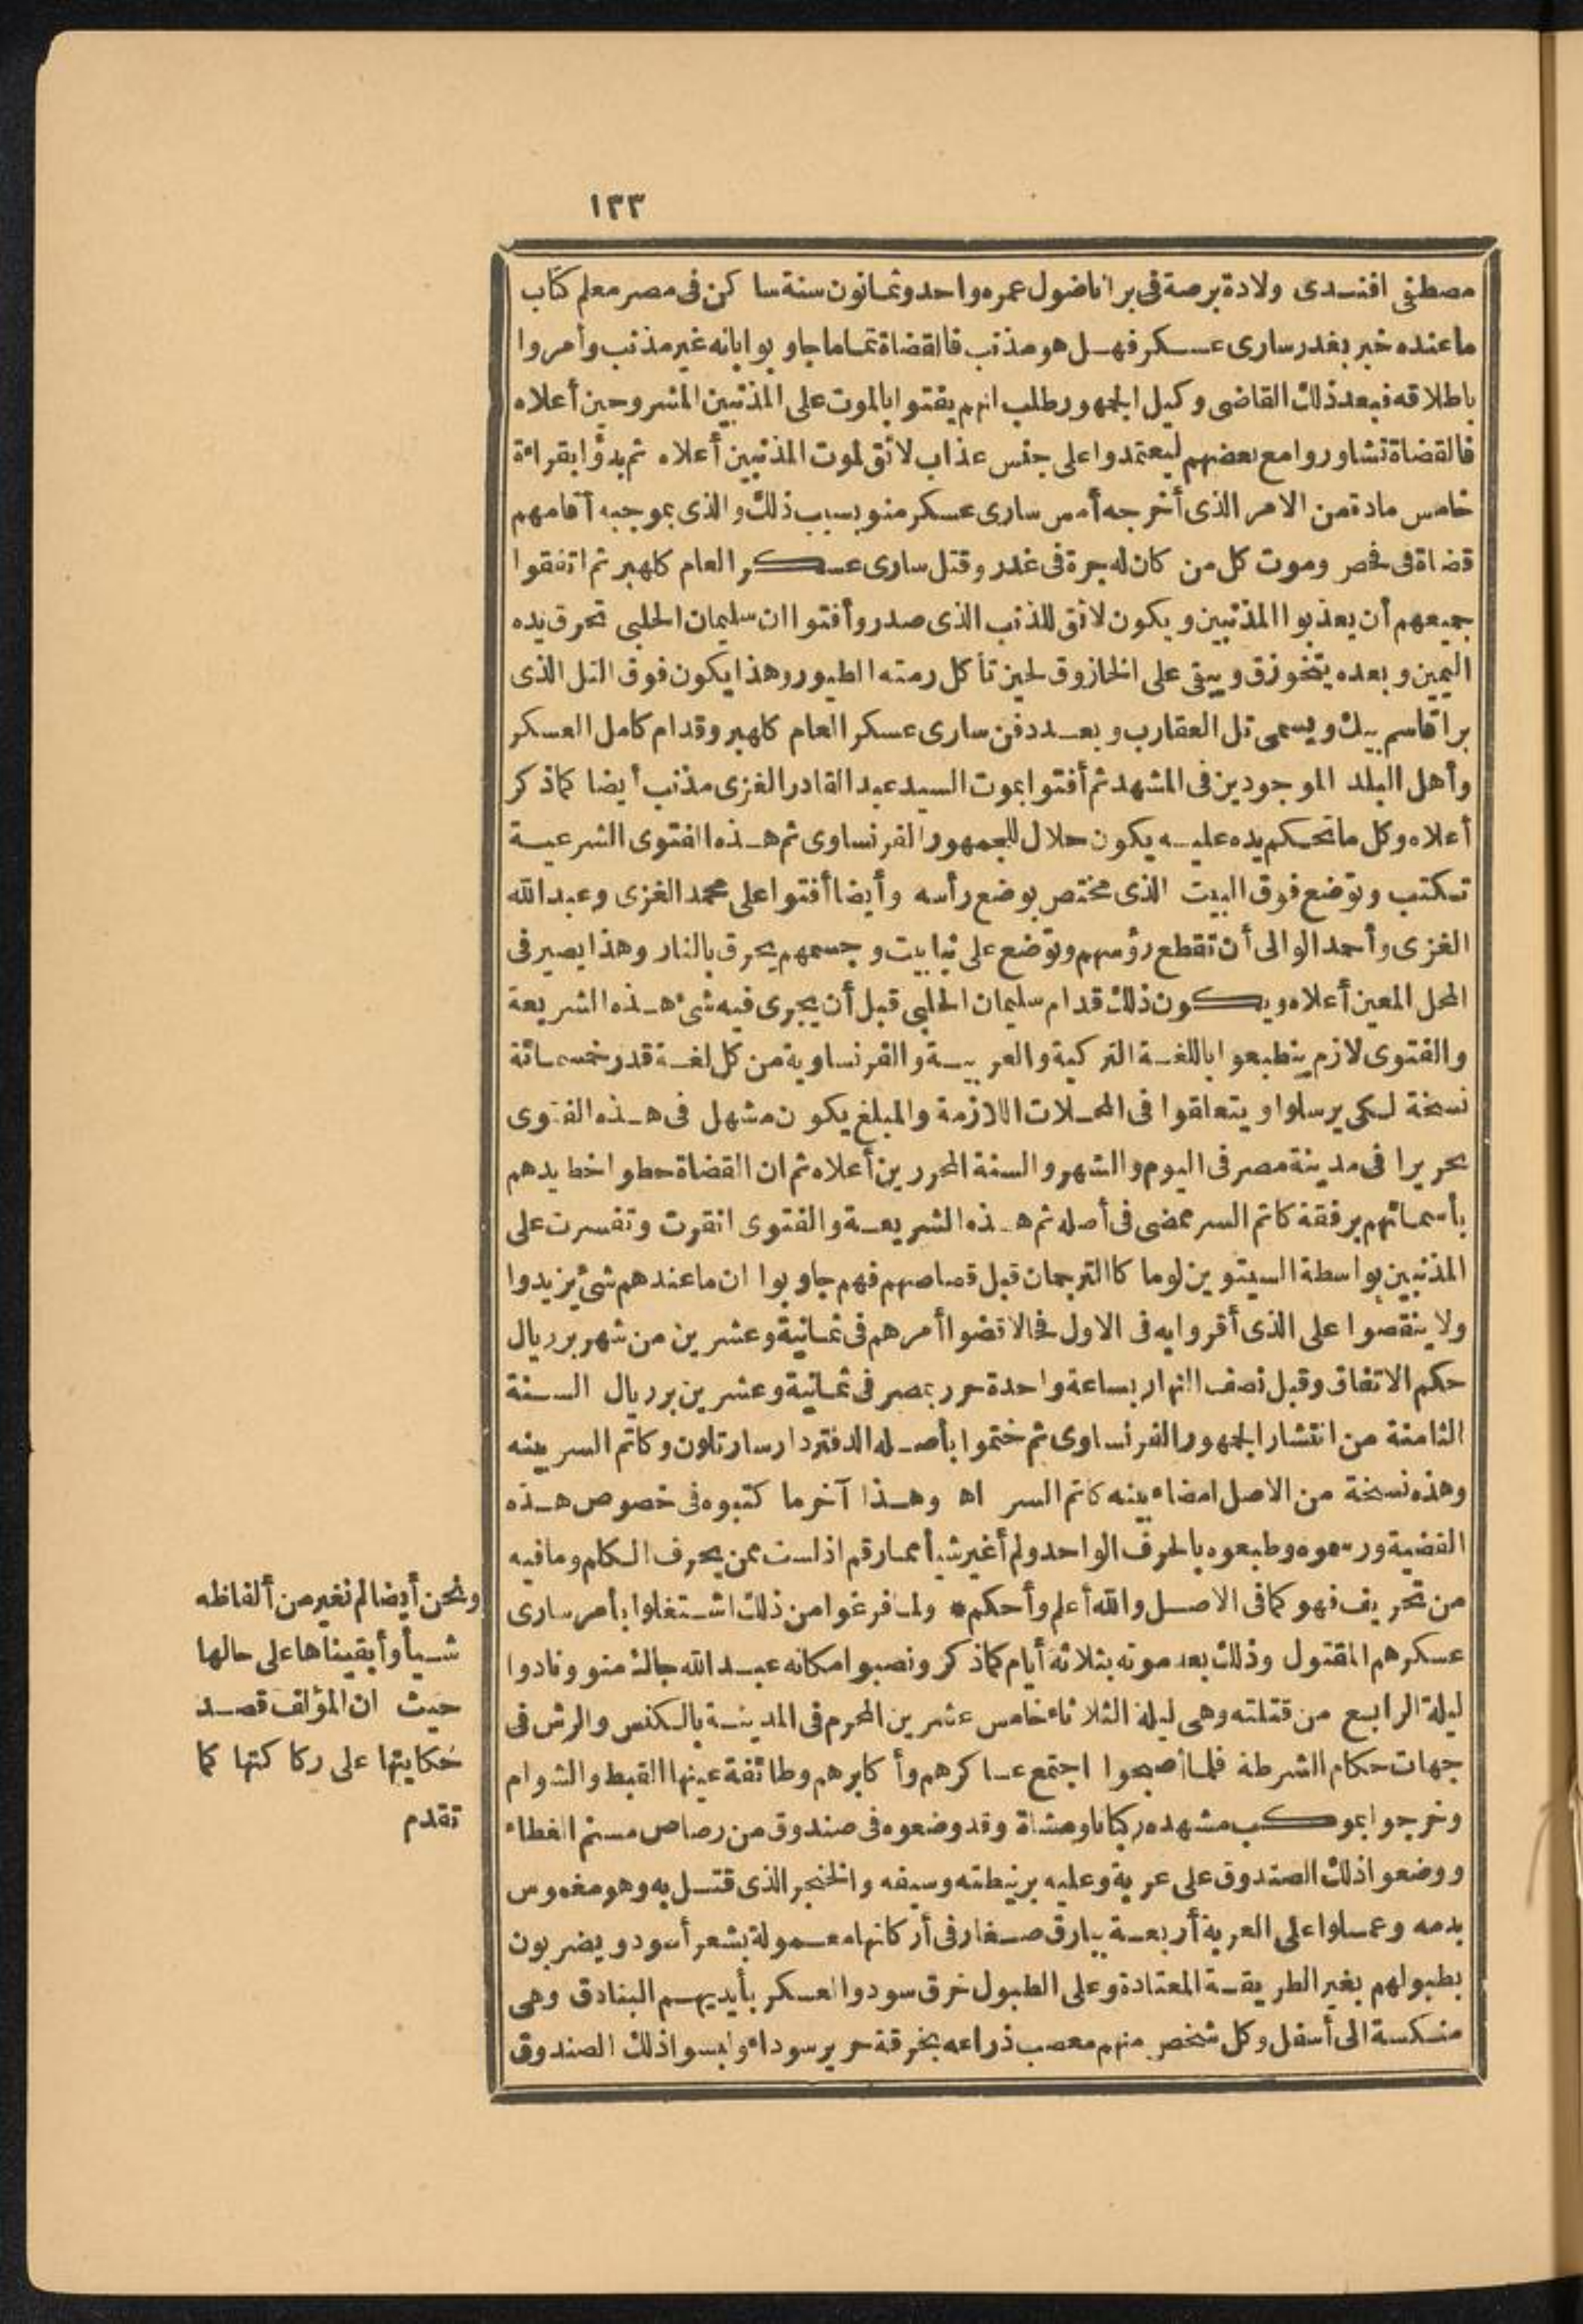 ١٣٣
مصطفى افندى ولادة برصة فى بر اناضول عمره واحد وثمانون سنة ساكن فى مصر معلم كتاب
ما عنده خبر بغدر سارى عسكر فهل هو مذنب فالقضاة تماما جاوبوا بانه غير مذنب وأمروا
باطلاقه فبعد ذلك القاضى وكيل الجمهور طلب انهم يفتوا بالموت على المذنبين المشروحين أعلاه
فالقضاة تشاوروا مع بعضهم ليعتمدوا على جنس عذاب لائق لموت المذنبين أعلاه ثم بدؤا بقراءة
خامس مادة من الامر الذى أخرجه أمس سارى عسكر منو بسبب ذلك والذى بموجبه أقامهم
قضاة فى فحص وموت كل من كان له جرة فى غدر وقتل سارى عسكر العام كلهبر ثم اتفقوا
جميعهم أن يعذبوا المذنبين ويكون لائق للذنب الذى صدر وأفتوا ان سليمان الحلبى تحرق يده
اليمين وبعده يتخوزق ويبقى على الخازوق لحين تأكل رمته الطيور وهذا يكون فوق التل الذى
برا قاسم بيك ويسمى تل العقارب وبعد دفن سارى عسكر العام كلهبر وقدام كامل العسكر
وأهل البلد الموجودين فى المشهد ثم أفتوا بموت السيد عبد القادر الغزى مذنب أيضا كما ذكر
أعلاه وكل ما تحكم يده عليه يكون حلال للجمهور الفرنساوى ثم هذه الفتوى الشرعية
تكتب وتوضع فوق البيت الذى مختص بوضع رأسه وأيضا أفتوا على محمد الغزى وعبد الله
الغزى وأحمد الوالى أن تقطع رؤسهم وتوضع على نبابيت وجسمهم يحرق بالنار وهذا يصير فى
المحل المعين أعلاه ويكون ذلك قدام سليمان الحلبى قبل أن يجرى فيه شئ هذه الشريعة
والفتوى لازم ينطبعوا باللغة التركية والعربية والفرنساوية من كل لغة قدر خمسمائة
نسخة لكى يرسلوا ويتعلقوا فى المحلات اللازمة والمبلغ يكون مشهل فى هذه الفتوى
تحريرا فى مدينة مصر فى اليوم والشهر والسنة المحررين أعلاه ثم ان القضاة حطوا خط يدهم
بأسمائهم برفقة كاتم السر ممضى فى أصله ثم هذه الشريعة والفتوى انقرت وتفسرت على
المذنبين بواسطة السيتوين لوما كا الترجمان قبل قصاصهم فهم جاوبوا ان ما عندهم شئ يزيدوا
ولا ينقصوا على الذى أقروا به فى الاول فحالا قضوا أمرهم فى ثمانية وعشرين من شهر بر ريال
حكم الاتفاق وقبل نصف النهار بساعة واحدة حرر بمصر فى ثمانية وعشرين بر ريال السنة
الثامنة من انتشار الجمهور الفرنساوى ثم ختموا بأصله الدفتردار سارتلون وكاتم السر بينه
وهذه نسخة من الاصل امضاء بينه كاتم السر اه وهذا آخر ما كتبوه فى خصوص هذه
القضية ورسموه وطبعوه بالحرف الواحد ولم أغير شيأ مما رقم اذ لست ممن يحرف الكلم وما فيه
من تحريف فهو كما فى الاصل والله أعلم وأحكم * ولما فرغوا من ذلك اشتغلوا بأمر سارى
عسكرهم المقتول وذلك بعد موته بثلاثة أيام كما ذكر ونصبوا مكانه عبد الله جاك منو ونادوا
ليلة الرابع من قتلته وهى ليلة الثلاثاء خامس عشرين المحرم فى المدينة بالكنس والرش فى
جهات حكام الشرطة فلما أصبحوا اجتمع عساكرهم وأكابرهم وطائفة عينها القبط والشوام
وخرجوا بموكب مشهده ركبانا ومشاة وقد وضعوه فى صندوق من رصاص مسنم الغطاء
ووضعوا ذلك الصندوق على عربة وعليه برنيطته وسيفه والخنجر الذى قتل به وهو مغموس
بدمه وعملوا على العربة أربعة بيارق صغار فى أركانها معمولة بشعر أسود ويضربون
بطبولهم بغير الطريقة المعتادة وعلى الطبول خرق سود والعسكر بأيديهم البنادق وهى
منكسة الى أسفل وكل شخص منهم معصب ذراعه بخرقة حرير سوداء ولبسوا ذلك الصندوق
ونحن أيضا لم نغير من ألفاظه
شيأ وأبقيناها على حالها
حيث ان المؤلف قصد
حكايتها على ركاكتها كما
تقدم